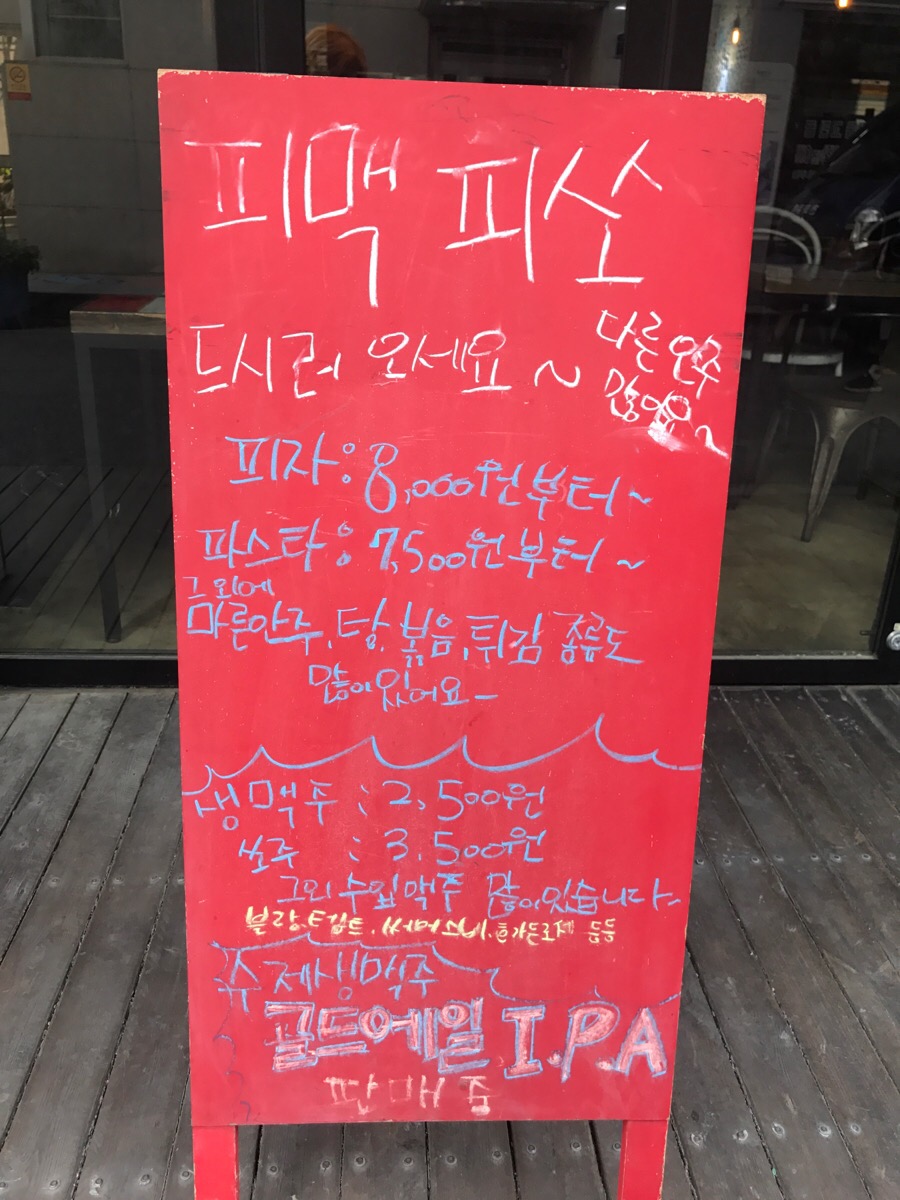 피맥 피쏘
드시러 오세요 ~
다른 안주
많아요~
피자 : 8,000원부터~
파스타 : 7,500원부터~
그외에
마른안주, 탕, 볶음, 튀김 종류도
많이있어요-
생맥주 : 2,500원
쏘주 : 3,500원
그외 수입맥주 많이있습니다~
수제생맥주~
골드에일, I.P.A
판매중